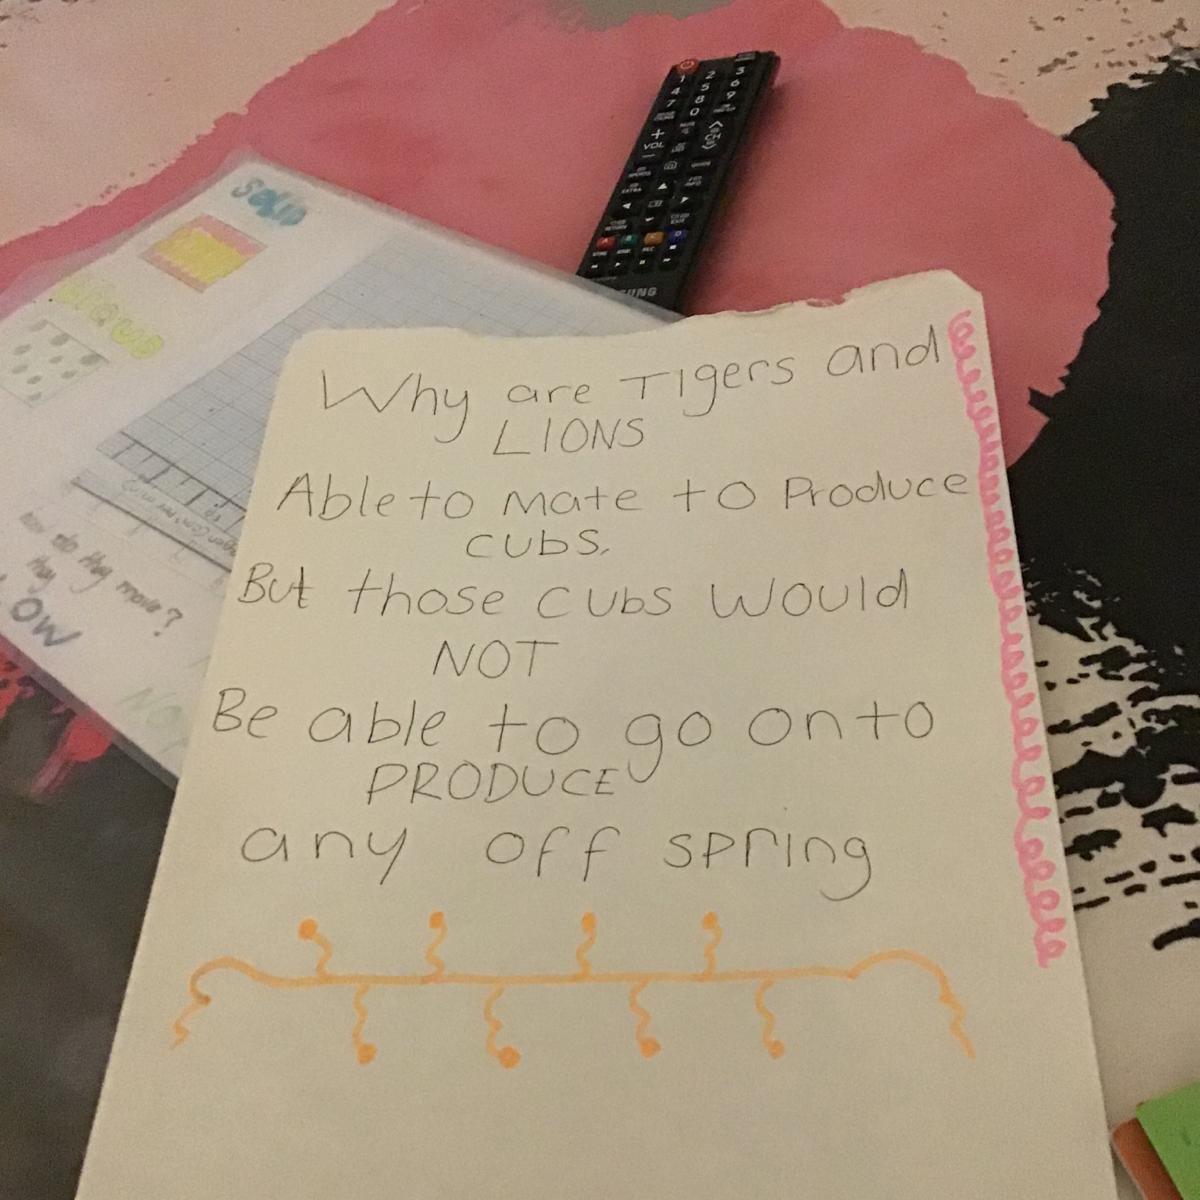 Why are Tigers and
LIONS
Able to mate to Produce
cubs.
But those cubs would
NOT
Be able to go onto
PRODUCE
any off spring
SOLID
LIQUID
how do they move?
they
OW
1 2 3
4 5 6
7 8 9
0
VOL